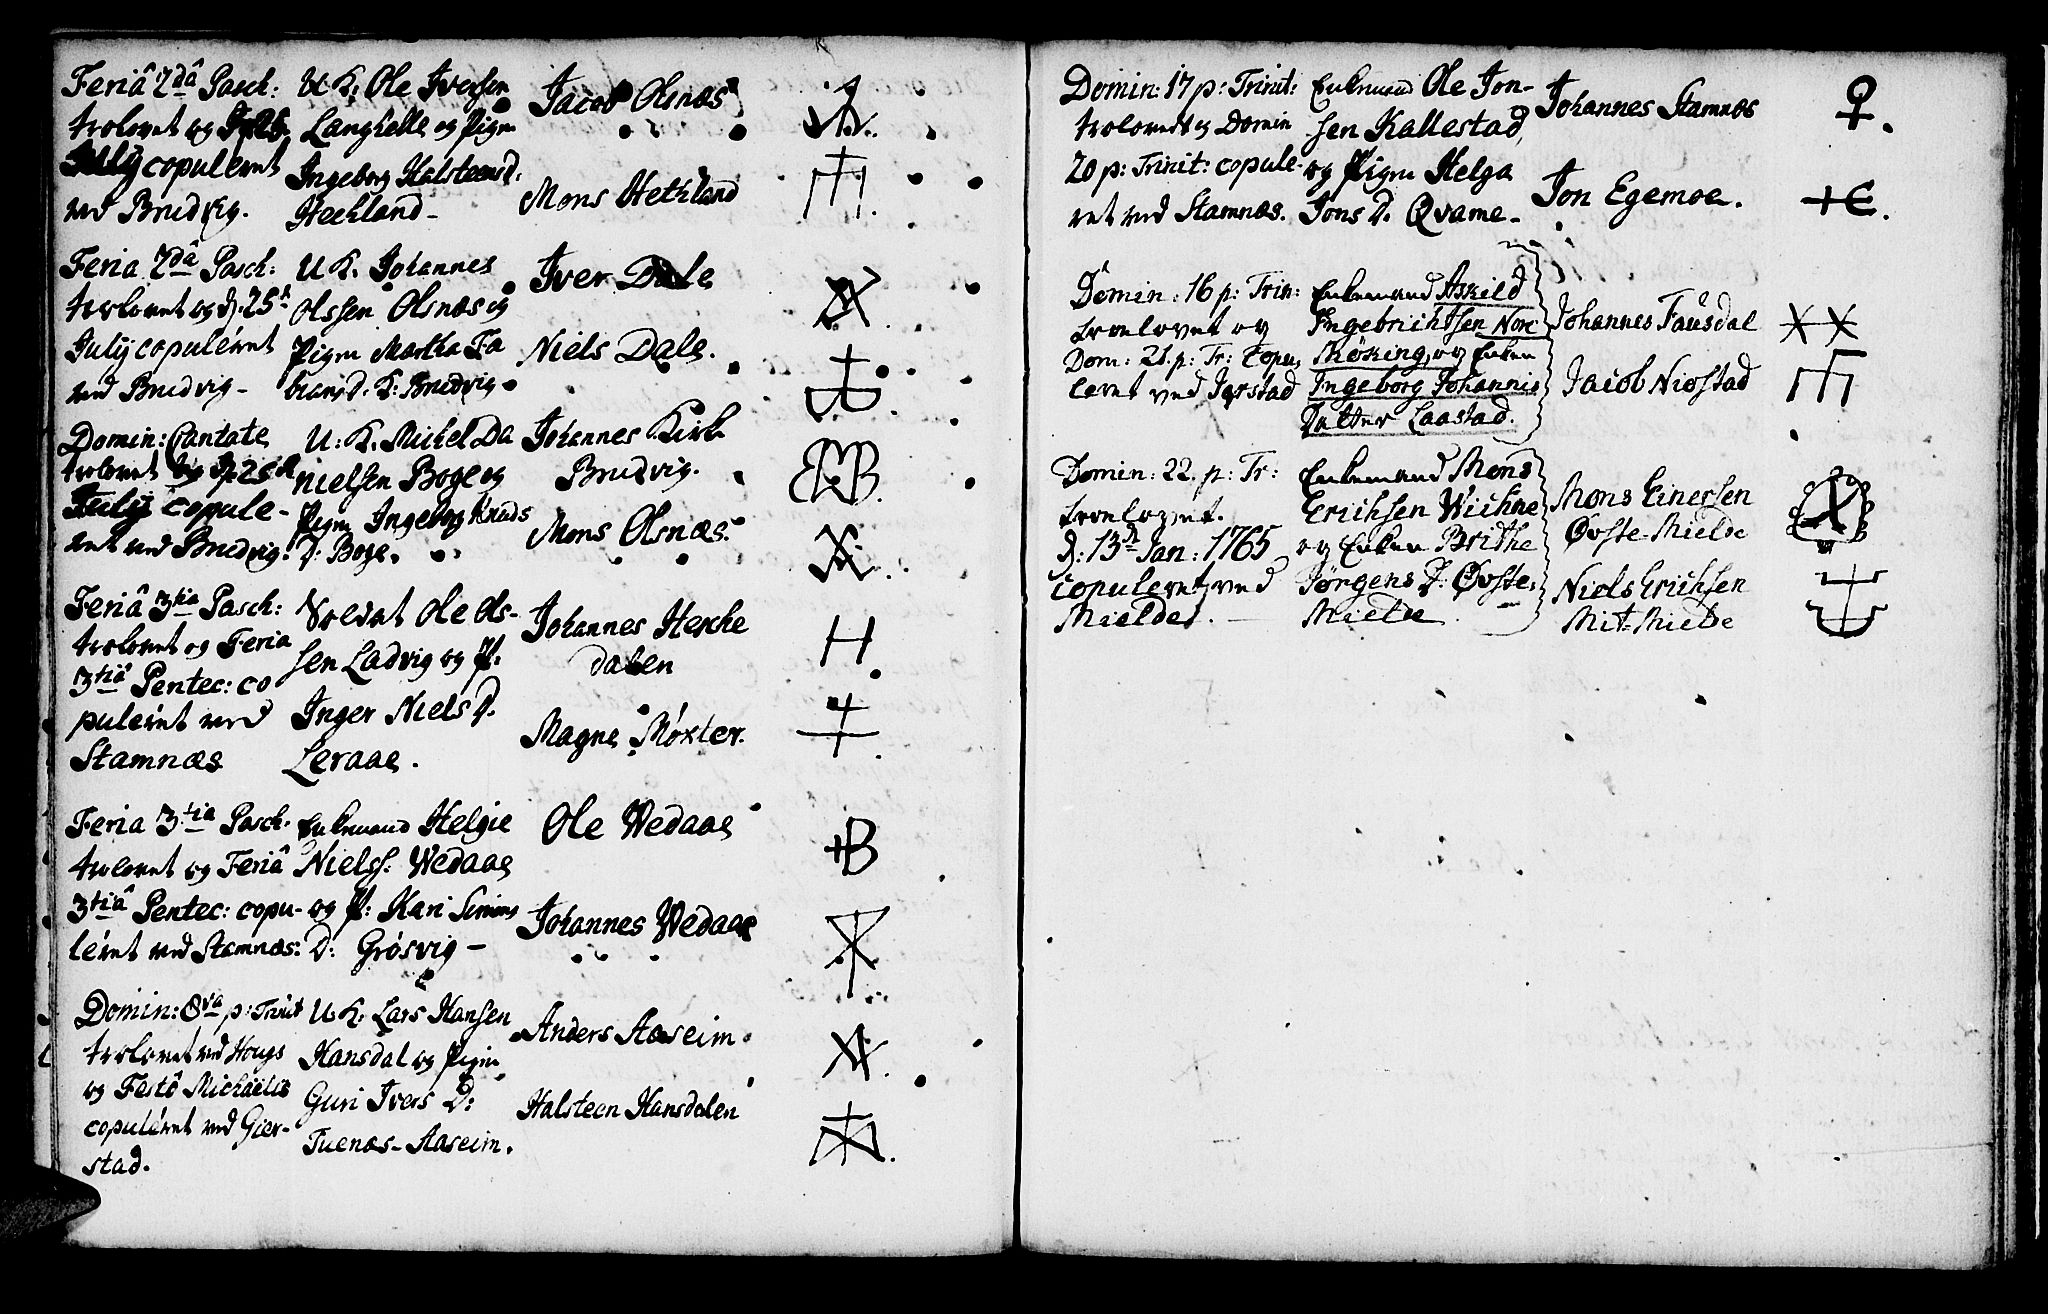 Feriâ 2dâ Pasch:
trolovet og d. 25
July copuleret
ved Bruvig.
U. K. Ole Iversen
Langhelle og Pigen
Ingeborg Halsteensd.
Heckland -
Jacob Olsnæs
Mons Hekland
Feria 2dâ Pasch:
trolovet og d. 25t
July copuleret
ved Bruvig -
U. K. Johannes
Olssen Olsnæs og
Pigen Martha Fa
biansD. K: Bruvig
Iver Dale
Niels Dale.
Domin: Cantate
trolovet og d. 25d
July copule-
ret ved Bruvig:
U: K. Michel Da
nielsen Boge og
Pigen Ingeborg Knuds
D: Boge.
Johannes Kirk
Bruvig.
Mons Olsnæs.
Feriâ 3tia Pasch:
trolovet og Feria
3tiâ Pentec: co
puleret ved
Stamnæs
Soldat Ole Ols-
sen Ladvig og P.
Inger Niels D.
Leraae.
Johannes Hesche
dalen
Magne Møster.
Feria 3tia Pasch.
trolovet og Feriâ
3tiâ Pentec: copu-
leret ved Stamnæs:
Enkemand Helgie
Nielss. Wedaae
og P: Kari Simens
D: Grøsvig -
Ole Wedaae
Johannes Wedaae
Domin: 8va p: Trinit
trolovet ved Hougs
og Festô Michaelis
copuléret ved Gier-
stad.
U. K. Lars Hansen
Hansdal og Pigen
Guri Ivers D:
Tuenæs - Aaseim.
Anders Aaseim.
Halsteen Hansdalen
Domin: 17 p: Trinit:
trolovet og Domin
20 p: Trinit: copule-
ret ved Stamnæs.
Enkemand Ole Jon-
sen Kallestad,
og Pigen Helga
Jons D. Qvame -
Johannes Stamnæs
Jon Egemoe.
Domin: 16 p: Trin:
troelovet og
Dom: 21. p: Tr: copu,
leret ved Jerstad
Enkemand Askild
Ingebrichtsen Nore
Møking, og Enken
Ingeborg Johannis
Datter Laastad.
Johannes Fausdal
Jacob Niostad
Domin: 22. p: Tr:
troelovet.
d: 13d Jan: 1765
copuleret ved
Mielde.
Enkemand Mons
Erichsen Wichne
og Enken Brithe
Jørgens D: Øvste
Mielde
Mons Einersen
Øvste Mielde
Niels Erichsen
Mit-Mielde